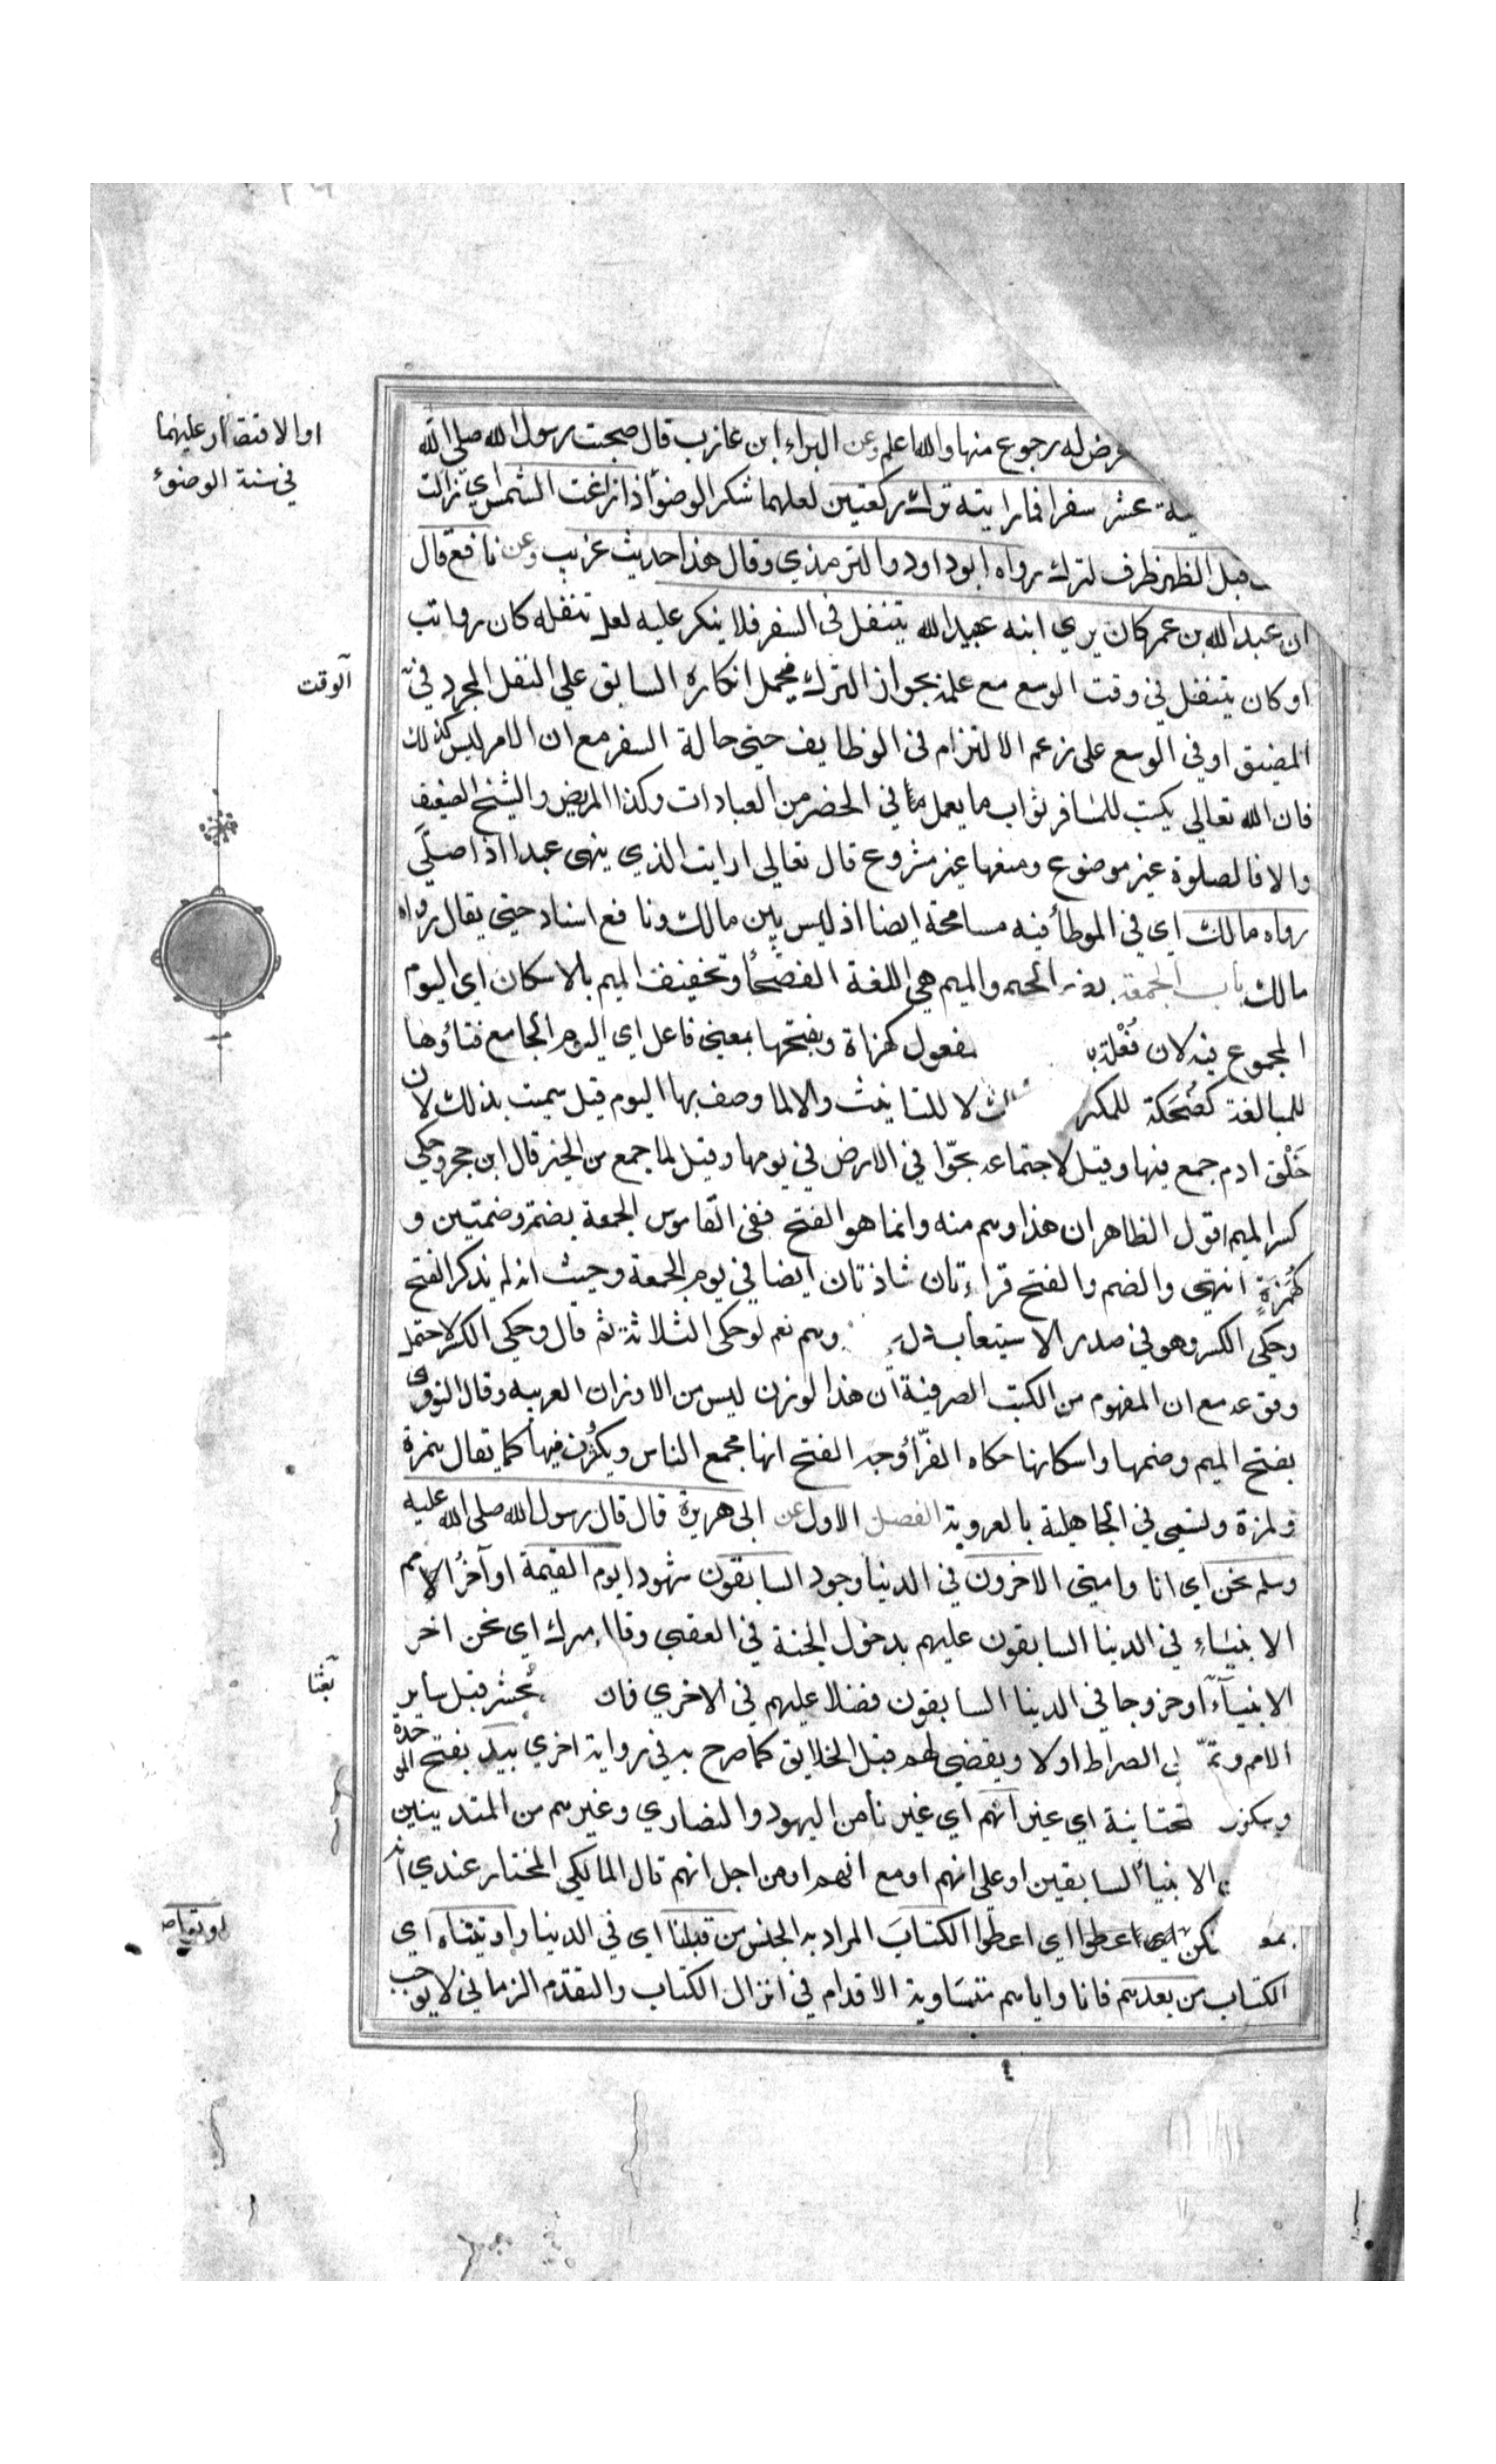 عرض له رجوع منها والله اعلم وعن البراء ابن عازب قال صحبت رسول الله صلى الله
ية عشر سفرا فما رايته ترك ركعتين لعلهما شكر الوضوء اذا زاغت الشمس اي زالت
قبل الظهر ظرف لترك رواه ابو داود والترمذي وقال هذا حديث غريب وعن نافع قال
ان عبد الله بن عمر كان يري ابنه عبيد الله يتنفل في السفر فلا ينكر عليه لعل تنفله كان رواتب
او كان يتنفل في وقت الوسع مع علمه بجواز الترك فيحمل انكاره السابق علي النفل المجرد في
المضيق او في الوسع على زعم الالتزام في الوظايف حتي حالة السفر مع ان الامر ليس كذلك
فان الله تعالي يكتب للمسافر ثواب ما يعمل ما في الحضر من العبادات وكذا المريض والشيخ الضعيف
والا فالصلوة غير موضوع ومنعها غير مشروع قال تعالي ارايت الذي ينهى عبدا اذا صلّي
رواه مالك اي في الموطأ فيه مسامحة ايضا اذ ليس بين مالك ونافع اسناد حتي يقال رواه
مالك باب الجمعة والميم هي اللغة الفصحأ وتخفيف الميم بالاسكان اي اليوم
المجموع فيه لان فُعْلة مفعول كهزاة وبفتحها بمعني فاعل اي اليوم الجامع فتاؤها
للمبالغة كضُحَكة للمكثر لا للتانيث والا لما وصف بها اليوم قيل سميت بذلك لان
خَلْق ادم جمع فيها وقيل لاجتماعه بحوّا في الارض في يومها وقيل لما جمع من الخير قال ابن حجر وحكي
كسر الميم اقول الظاهر ان هذا وهم منه وانما هو الفتح ففي القاموس الجمعة بضمة وضمتين و
كهُمَزَةٍ انتهي والضم والفتح قراءتان شاذتان ايضا في يوم الجمعة وحيث انه لم يذكر الفتح
وحكي الكسر وهو في صدر الاستيعاب وهم نعم لو حكى الثلاثة ثم قال وحكي الكسر لاحتمل
وقوعه مع ان المفهوم من الكتب الصرفية ان هذا الوزن ليس من الاوزان العربيه وقال النووي
بفتح الميم وضمها واسكانها حكاه الفرّأ وجه الفتح انها مجمع الناس ويكثرُن فيها كما يقال همزة
ولمزة وتسمى في الجاهلية بالعروبة الفصل الاول عن ابى هريرة قال قال رسول الله صلى الله عليه
وسلم نحن اي انا وامتي الاخرون في الدنيا وجود السابقون شهودا يوم القيمة او آخرُ الامم
الانبيَاءِ في الدنيا السابقون عليهم بدخول الجنة في العقبي وقال ميرك اي نحن اخر
الانبيآء او خروجا في الدنيا السابقون فضلا عليهم في الاخري فان تُحشر قبل ساير
الامم وتمر الصراط اولا ويقضي لهم قبل الخلايق كما صرح به في رواية اخري بيد بفتح الموحدة
وسكون تحتانية اي غير انهم اي غيرنا من اليهود والنصاري وغيرهم من المتدينين
الانبيأ السابقين او على انهم او مع انهم او من اجل انهم قال المالكي المختار عندي انه
لكن اعطوا اي اعطوا الكتابَ المراد به الجنس من قبلنا اي في الدنيا واوتيناه اي
الكتاب من بعدهم فانا واياهم متسَاوية الاقدام في انزال الكتاب والتقدم الزماني لا يوجب
او الاقتصار عليهما
في سنة الوضوء
الوقت
بعثا